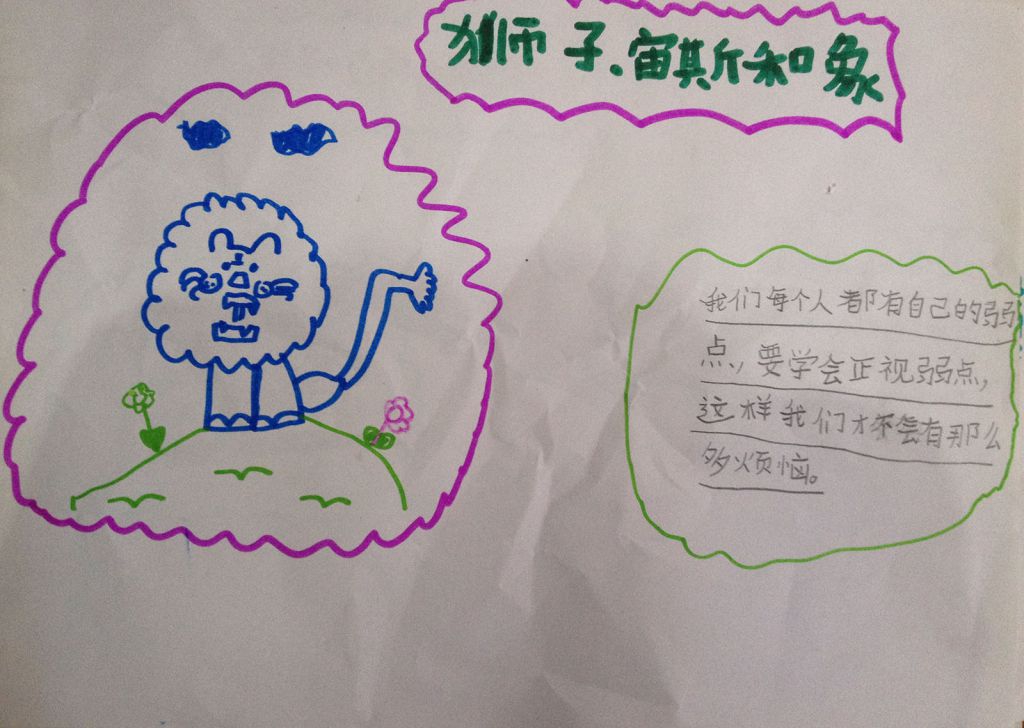 狮子.宙斯和象
我们每个人都有自己的弱弱
点，要学会正视弱点，
这样我们才不会有那么
多烦恼。